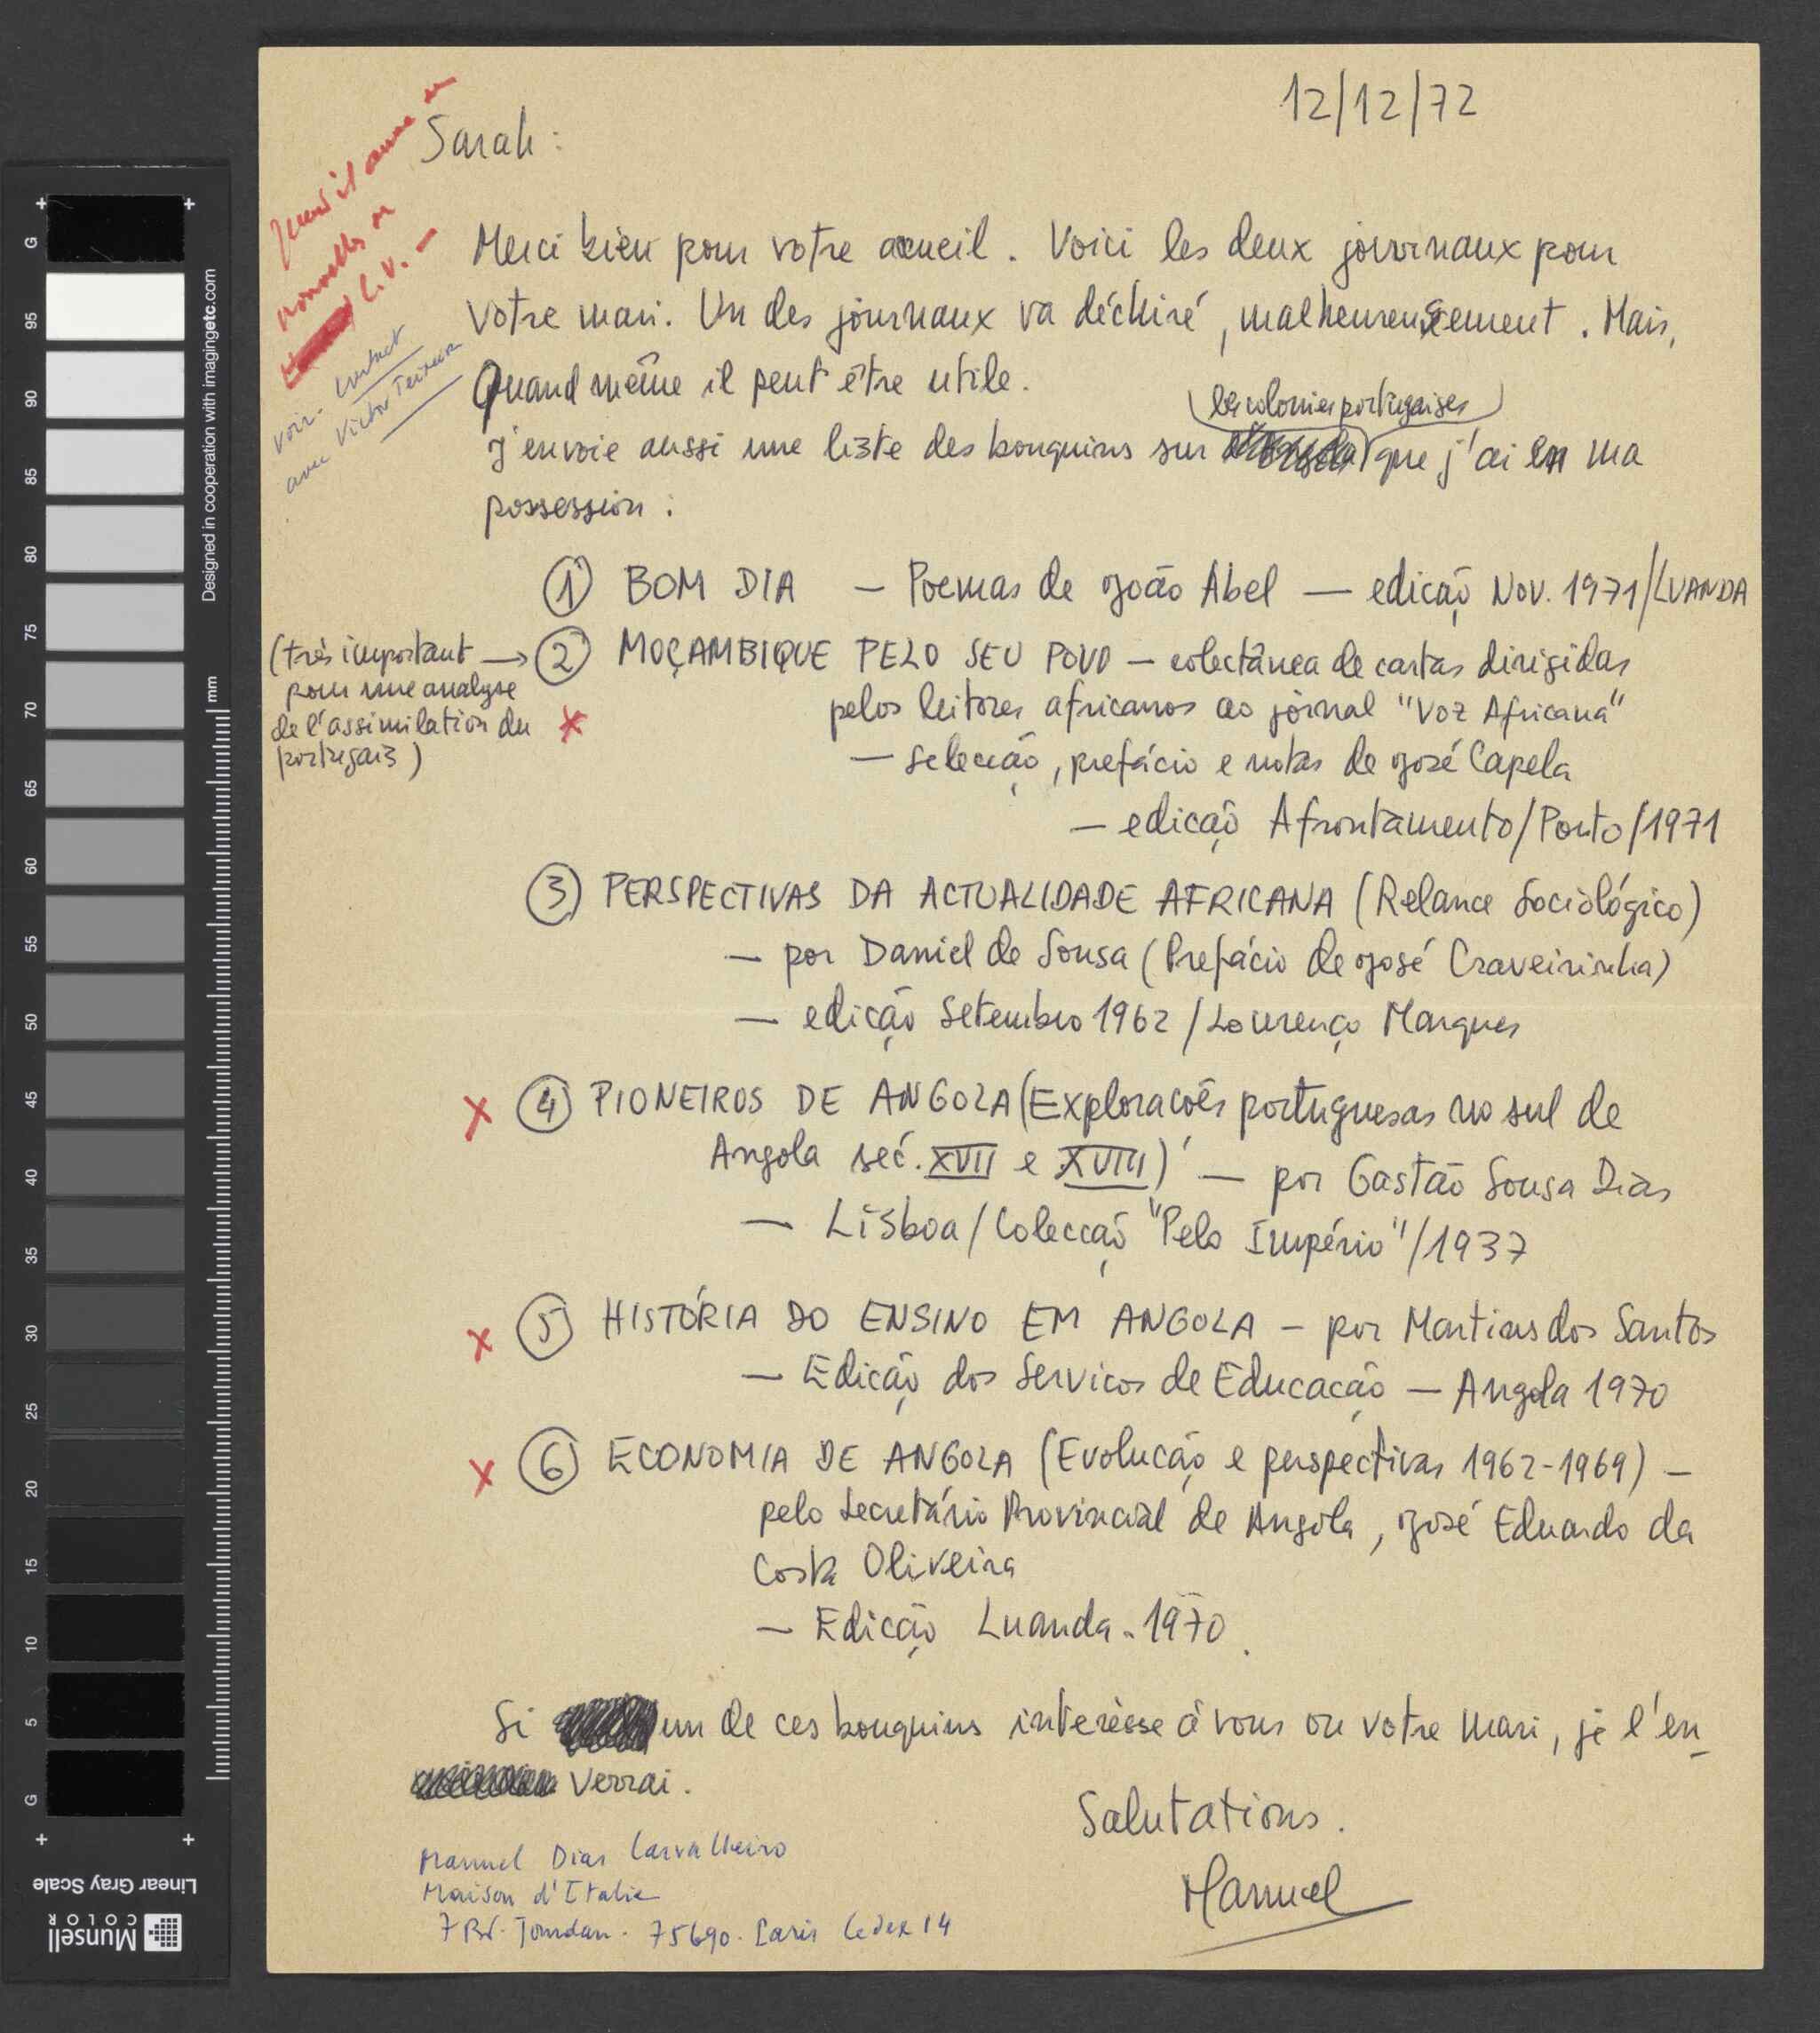 12/12/72
Sarah :
Merci bien pour votre accueil. Voici les deux journaux pour
votre mari. Un des journaux va déchiré, malheureusement. Mais,
Quand même il peut être utile.
les colonies portugaises
J'envoie aussi une liste des bouquins sur que j'ai en ma
possession :
voir. contact
avec Victor Teixeira
① BOM DIA — Poemas de João Abel — edição Nov. 1971/LUANDA
(très important → ② MOÇAMBIQUE PELO SEU POVO — colectânea de cartas dirigidas
pour une analyse
de l'assimilation du
portugais)
pelos leitores africanos ao jornal "Voz Africana"
— selecção, prefácio e notas de José Capela
— edição Afrontamento/Porto/1971
③ PERSPECTIVAS DA ACTUALIDADE AFRICANA (Relance Sociológico)
— por Daniel de Sousa (Prefácio de José Craveirinha)
— edição Setembro 1962/Lourenço Marques
x ④ PIONEIROS DE ANGOLA (Explorações portuguesas no sul de
Angola séc. XVII e XVIII) — por Gastão Sousa Dias
— Lisboa/Colecção "Pelo Império"/1937
x ⑤ HISTÓRIA DO ENSINO EM ANGOLA — por Martins dos Santos
— Edição dos Serviços de Educação — Angola 1970
x ⑥ ECONOMIA DE ANGOLA (Evolução e perspectivas 1962-1969) —
pelo Secretário Provincial de Angola, José Eduardo da
Costa Oliveira
— Edição Luanda - 1970.
Si un de ces bouquins interèsse à vous ou votre mari, je l'en-
verrai.
Salutations.
Manuel
Manuel Dias Carvalheiro
Maison d'Italie
7 Bd. Jourdan. 75690. Paris Cedex 14
G 95 90 85 80 75 70 65 60 55 50 45 40 35 30 25 20 15 10 5 G
mm
Designed in cooperation with imagingetc.com
Linear Gray Scale
Munsell
COLOR